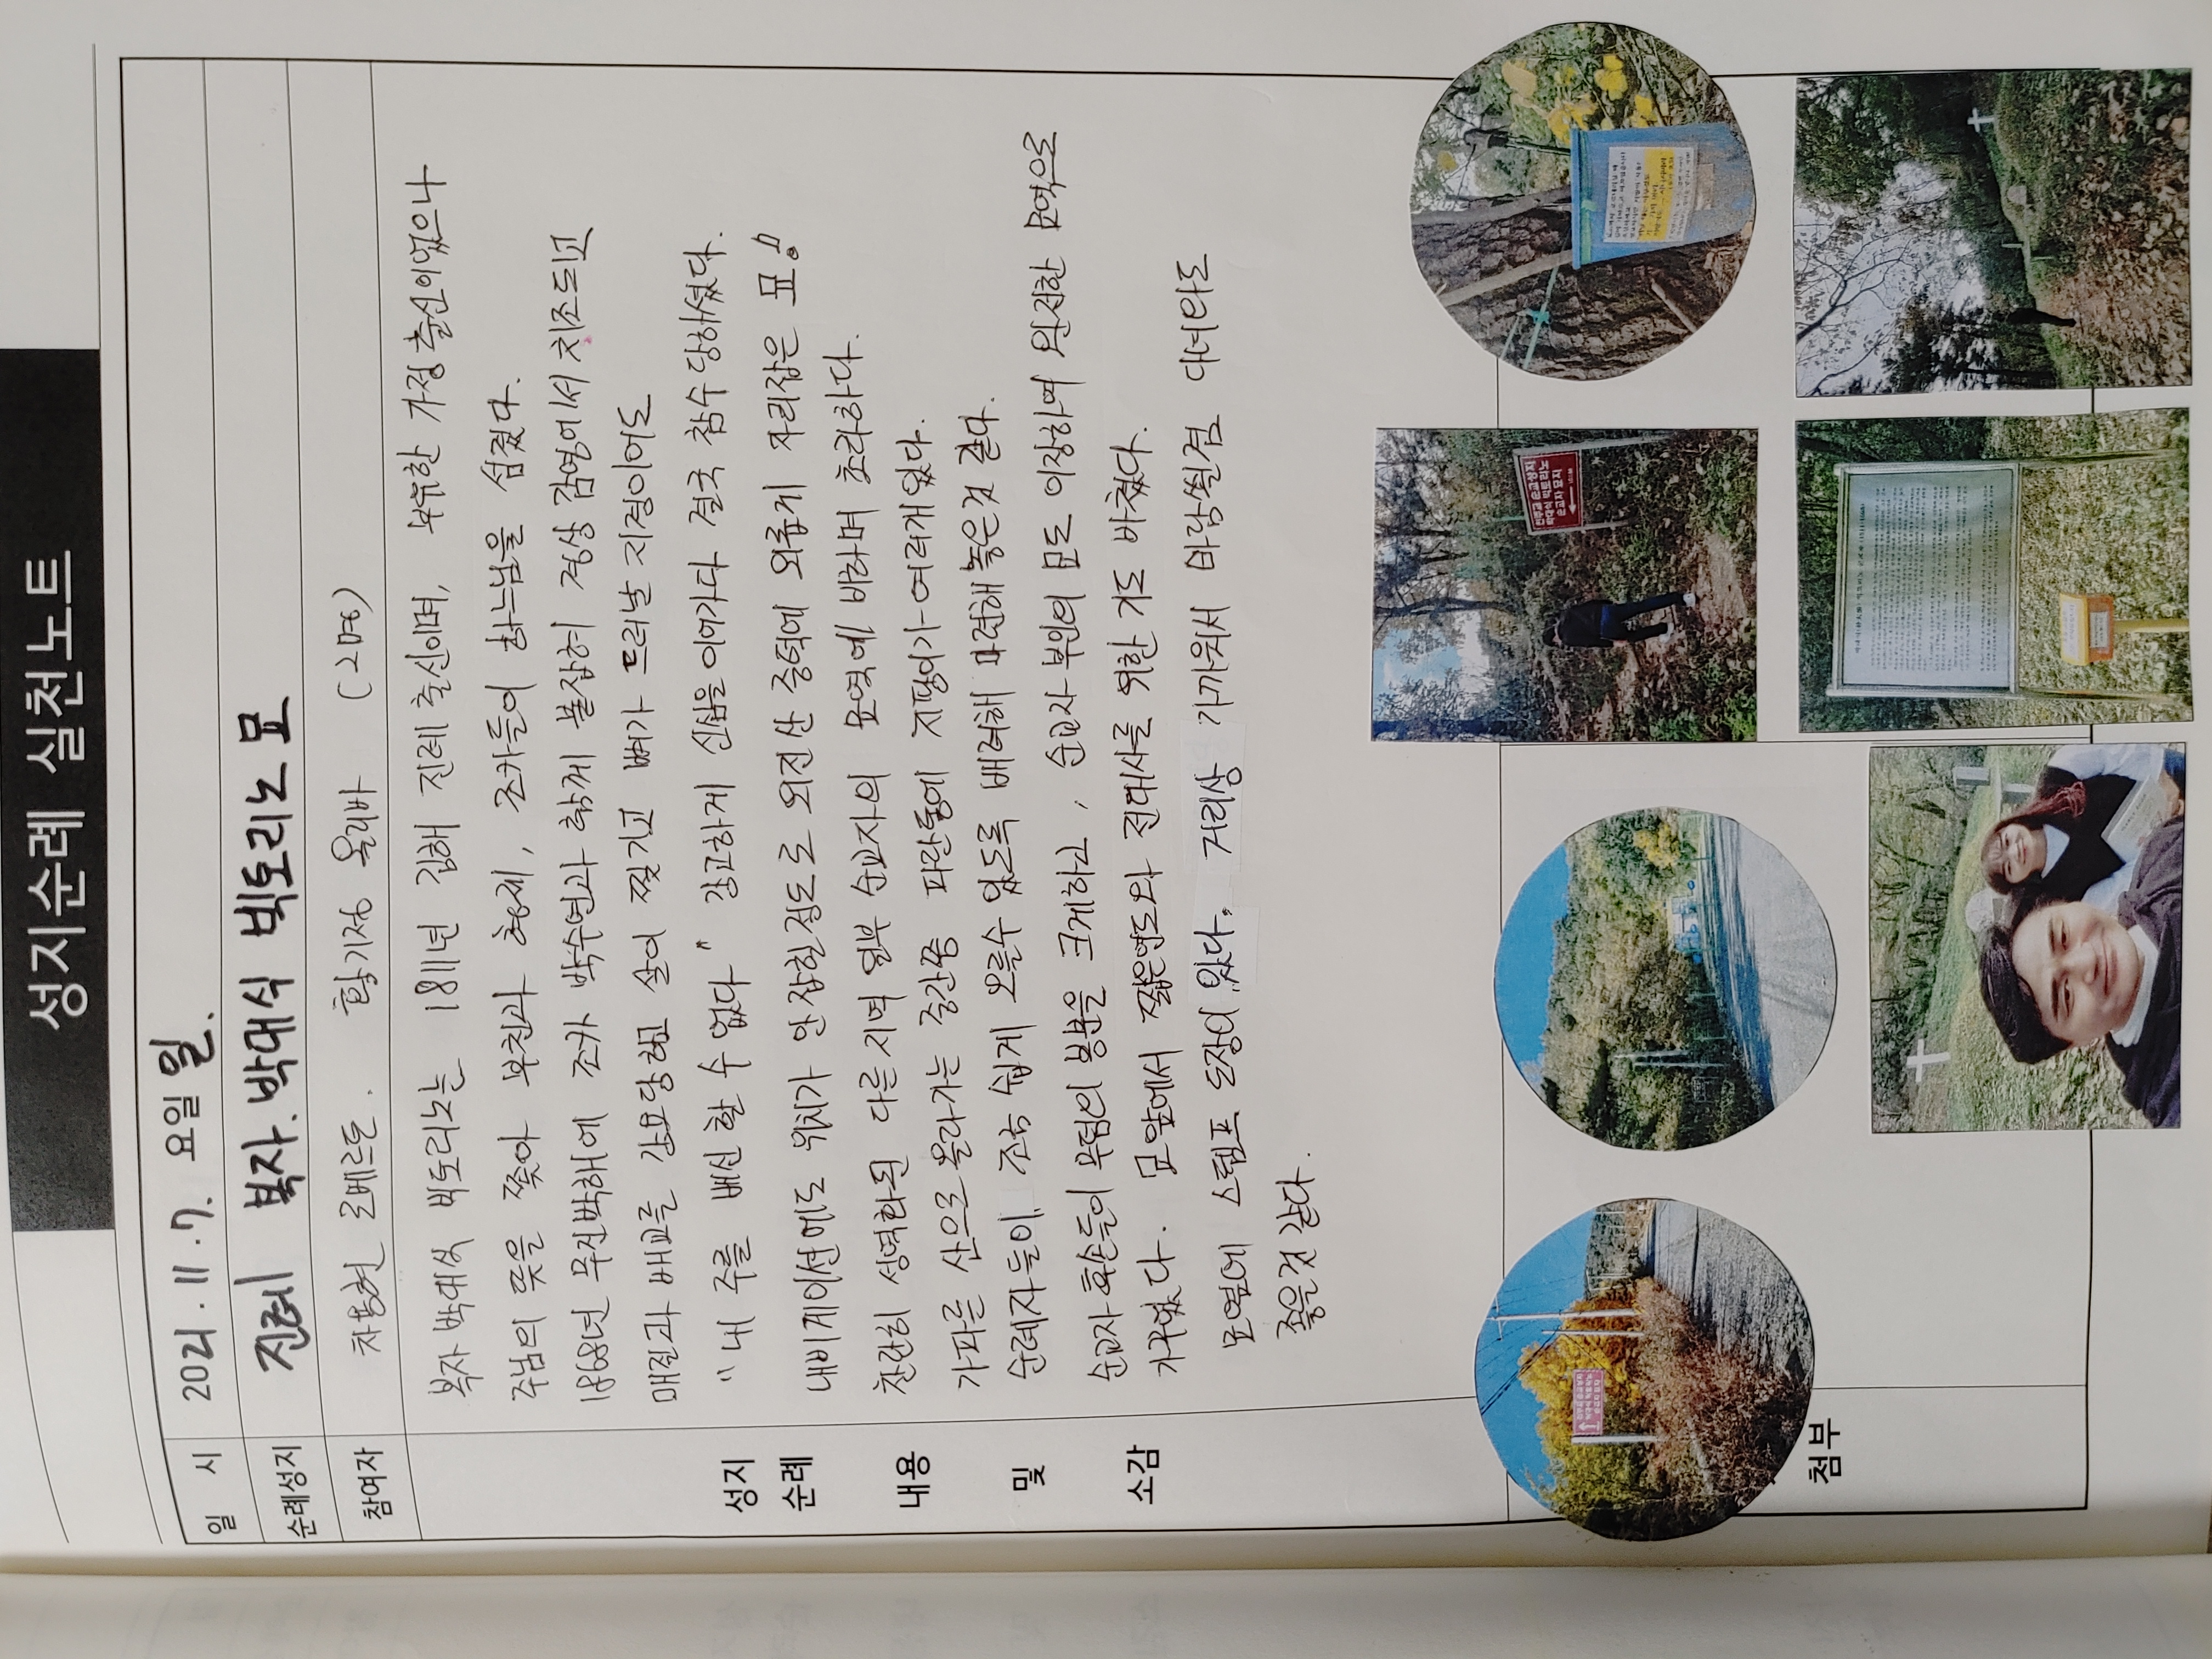 성지순례 실천노트
일 시
2021. 11. 7. 요일 일.
순례성지
진례 복자. 박대식 빅토리노 묘
참여자
차용현 로베르토. 황기정 올리바 (2명)
성지
순례
내용
및
소감
복자 박대식 빅토리노는 1811년 김해 진례 출신이며, 부유한 가정 출신이었으나
주님의 뜻을 쫓아 부친과 형제, 조카들이 하느님을 섬겼다.
1868년 무진박해에 조카 박수연과 함께 붙잡혀 경상 감영에서 치조되고
매질과 배교를 강요당하고 살이 찢기고 뼈가 드러날 지경이어도
"내 주를 배신 할 수 없다" 강고하게 신심을 이어가다 결국 참수 당하셨다.
내비게이션에도 위치가 안 잡힐정도로 외진 산 중턱에 외롭게 자리잡은 묘!
찬란히 성역화된 다른 지역 일부 순교자의 묘역에 비하며 초라하다.
가파른 산으로 올라가는 중간쯤 파란통에 지팡이가 여러개 있다.
순례자들이 조금 쉽게 오를수 있도록 배려해 마련해 놓은것 같다.
순교자 후손들이 무덤의 봉분을 크게하고, 순교자 부인의 묘도 이장하여 완전한 묘역으로
가꾸었다. 묘앞에서 짧은연도와 전대사를 위한 기도 바쳤다.
묘옆에 스템프 도장이 있다. 거리상 가까워서 바람쐴겸 다녀와도
좋을것 같다.
첨부
천주교 순교성지
박대식 빅토리노
순교자 묘지
천주교 순교성지
박대식 빅토리노
순교자 묘지